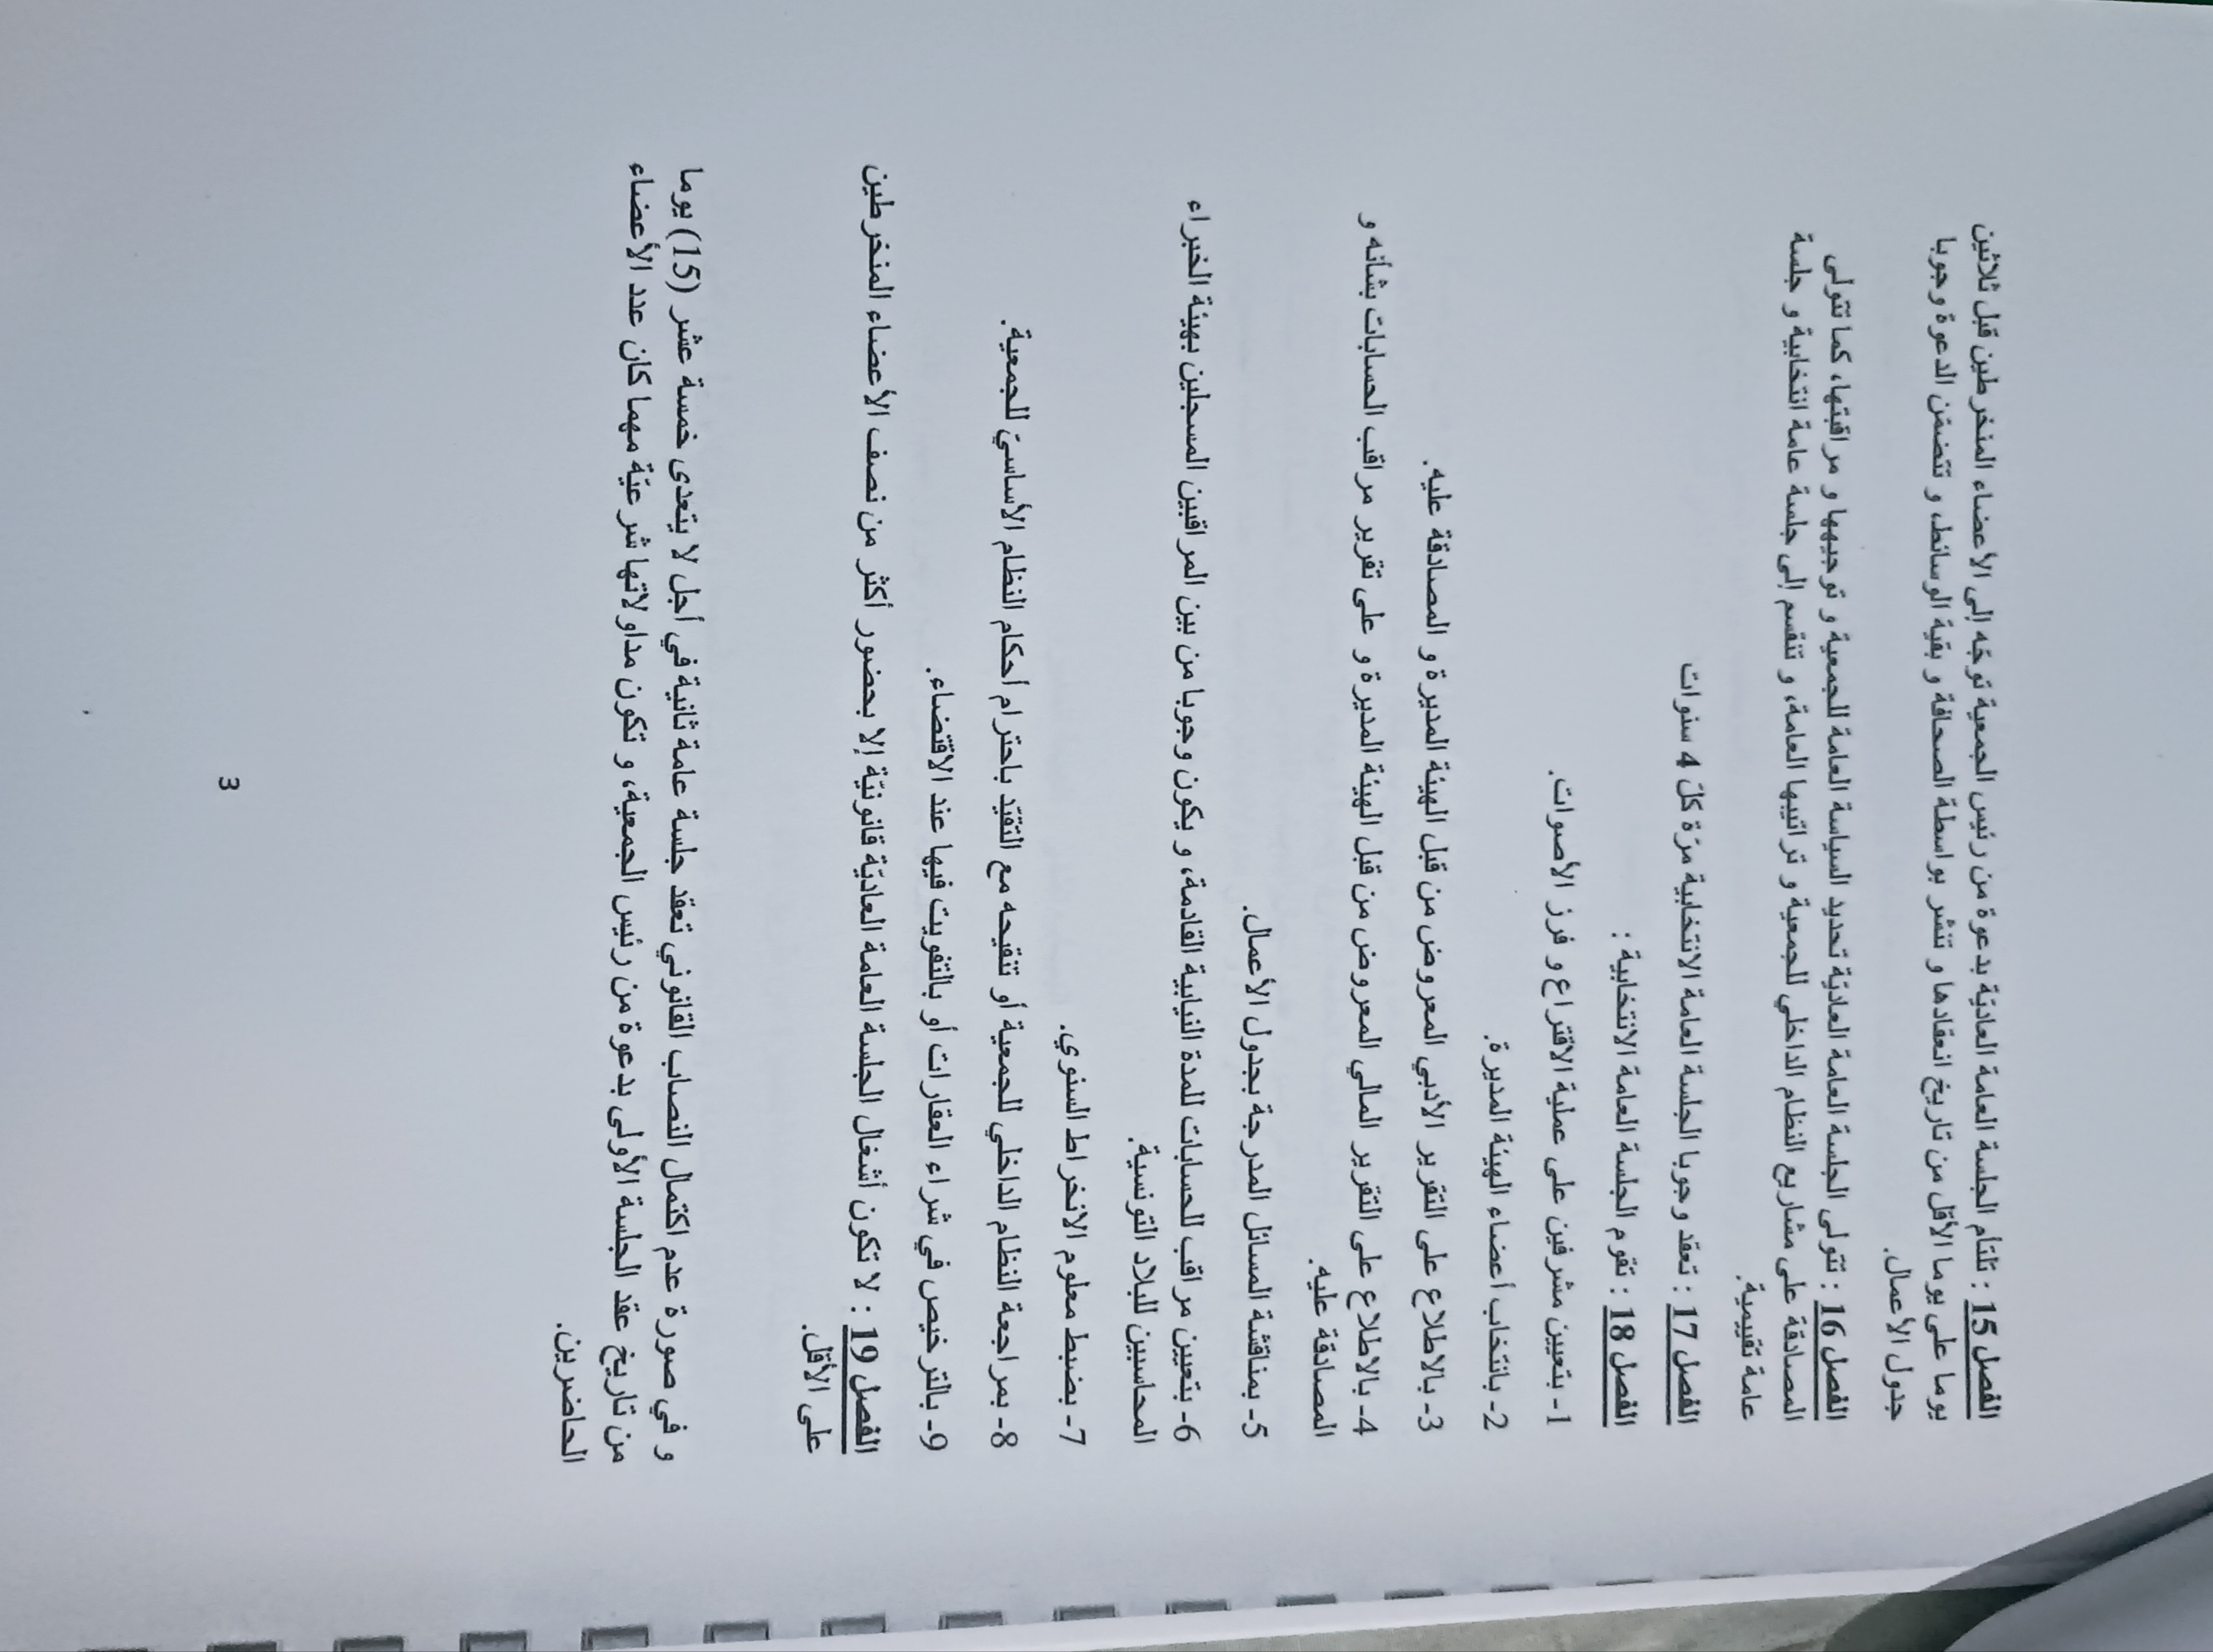 الفصل 15 : تلتأم الجلسة العامة العاديّة بدعوة من رئيس الجمعية توجّه إلى الأعضاء المنخرطين قبل ثلاثين
يوما على يوما الأقل من تاريخ انعقادها و تنشر بواسطة الصحافة و بقية الوسائط، و تتضمّن الدعوة وجوبا
جدول الأعمال.
الفصل 16 : تتولى الجلسة العامة العاديّة تحديد السياسة العامة للجمعية و توجيهها و مراقبتها، كما تتولى
المصادقة على مشاريع النظام الداخلي للجمعية و تراتيبها العامة، و تنقسم إلى جلسة عامة انتخابية و جلسة
عامة تقييمية.
الفصل 17 : تعقد وجوبا الجلسة العامة الانتخابية مرّة كلّ 4 سنوات
الفصل 18 : تقوم الجلسة العامة الانتخابية :
1- بتعيين مشرفين على عملية الاقتراع و فرز الأصوات.
2- بانتخاب أعضاء الهيئة المديرة.
3- بالاطلاع على التقرير الأدبي المعروض من قبل الهيئة المديرة و المصادقة عليه.
4- بالاطلاع على التقرير المالي المعروض من قبل الهيئة المديرة و على تقرير مراقب الحسابات بشأنه و
المصادقة عليه.
5- بمناقشة المسائل المدرجة بجدول الأعمال.
6- بتعيين مراقب للحسابات للمدة النيابية القادمة، و يكون وجوبا من بين المراقبين المسجلين بهيئة الخبراء
المحاسبين للبلاد التونسية.
7- بضبط معلوم الانخراط السنوي.
8- بمراجعة النظام الداخلي للجمعية أو تنقيحه مع التقيّد باحترام أحكام النظام الأساسيّ للجمعية.
9- بالترخيص في شراء العقارات أو بالتفويت فيها عند الاقتضاء.
الفصل 19 : لا تكون أشغال الجلسة العامة العاديّة قانونيّة إلا بحضور أكثر من نصف الأعضاء المنخرطين
على الأقل.
و في صورة عدم اكتمال النصاب القانوني تعقد جلسة عامة ثانية في أجل لا يتعدى خمسة عشر (15) يوما
من تاريخ عقد الجلسة الأولى بدعوة من رئيس الجمعية، و تكون مداولاتها شرعيّة مهما كان عدد الأعضاء
الحاضرين.
3